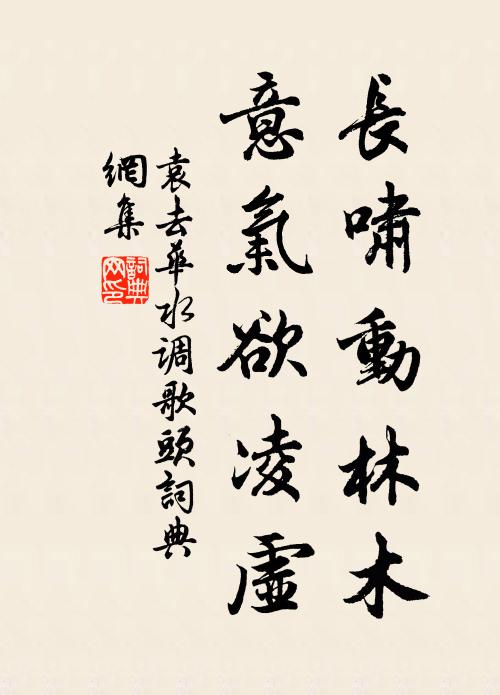 長嘯動林木
意氣欲凌虛
袁去華水调歌頭詞典
網集
詞典網印